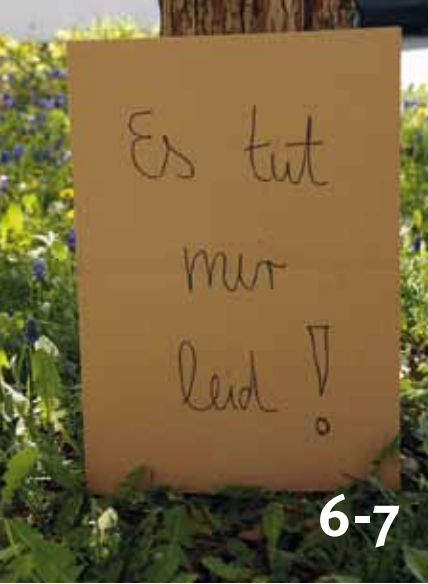 Es tut
mir
leid!
6-7